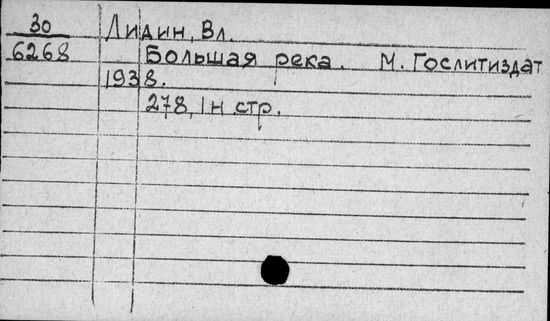 30 Лидин, Вл.
6268 Большая река. М. Гослитиздат
1938.
278, 1 н. стр.